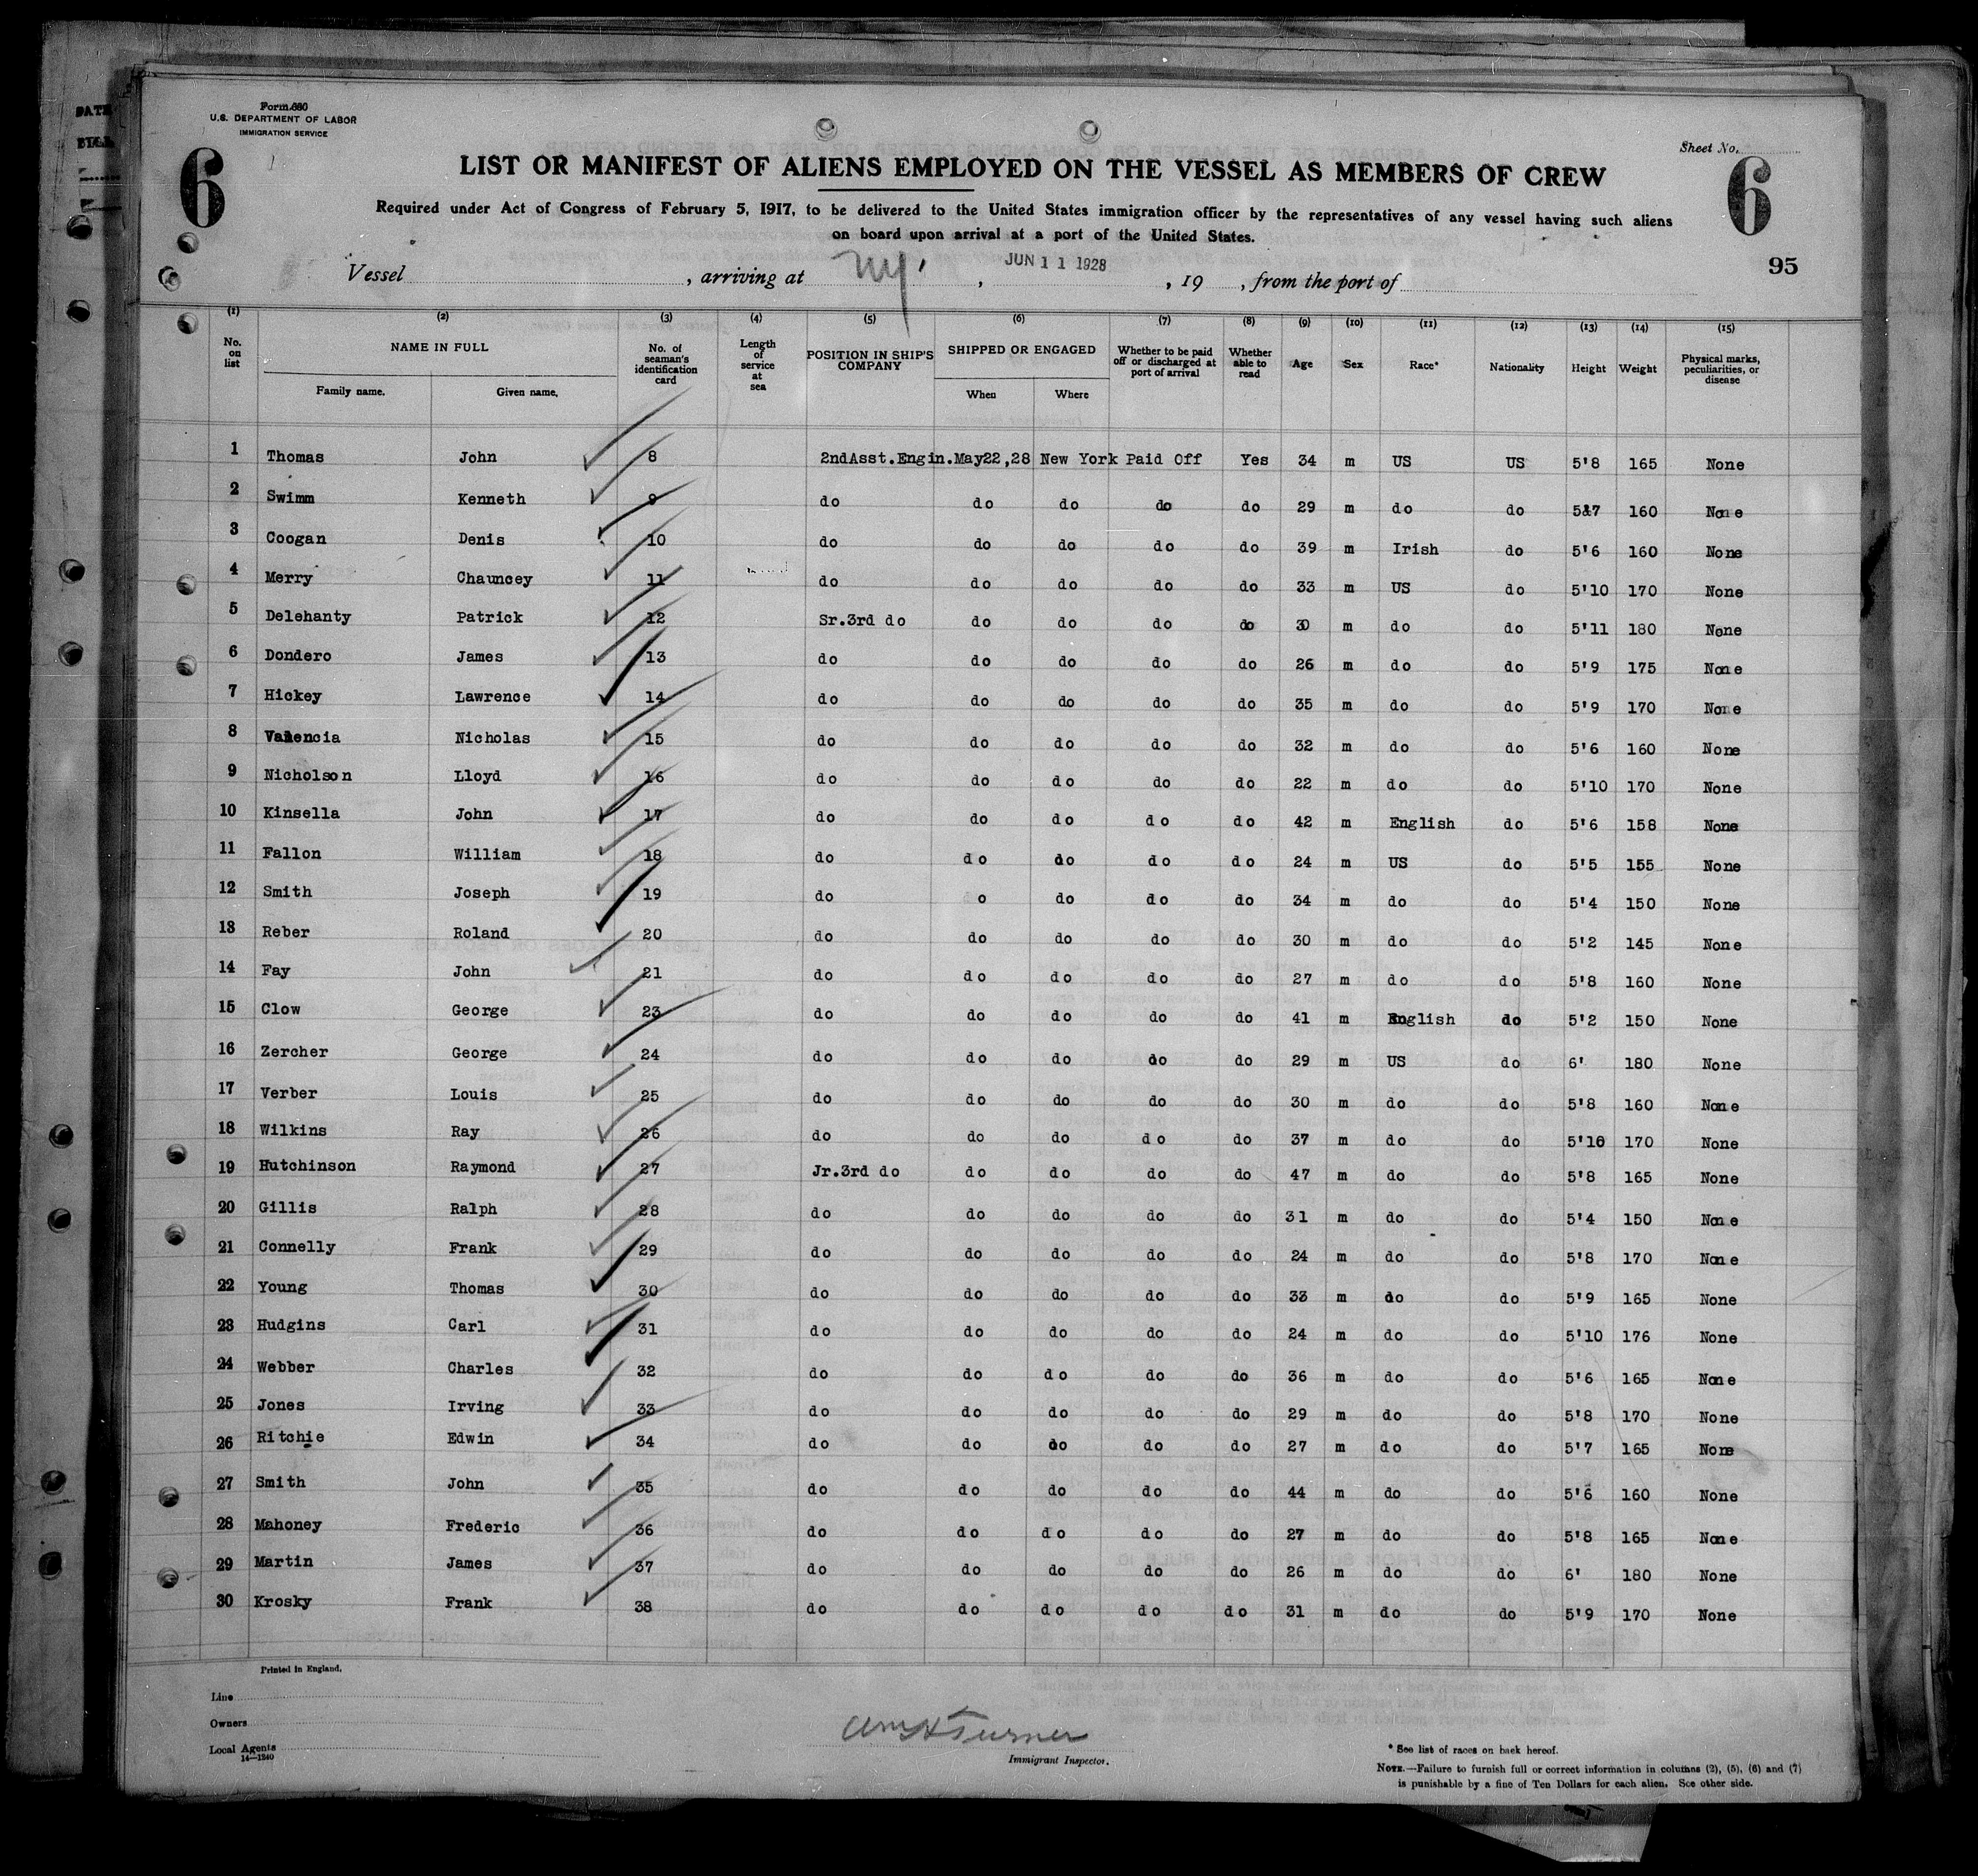 Form 680
U.S. DEPARTMENT OF LABOR
IMMIGRATION SERVICE
Sheet No.
6
6
95
LIST OR MANIFEST OF ALIENS EMPLOYED ON THE VESSEL AS MEMBERS OF CREW
Required under Act of Congress of February 5, 1917, to be delivered to the United States immigration officer by the representatives of any vessel having such aliens
on board upon arrival at a port of the United States.
Vessel , arriving at NY. , JUN 11 1928 , 19 , from the port of
(1) (2) (3) (4) (5) (6) (7) (8) (9) (10) (11) (12) (13) (14) (15)
No. on list NAME IN FULL Family name. Given name. No. of seaman's identification card Length of service at sea POSITION IN SHIP'S COMPANY SHIPPED OR ENGAGED When Where Whether to be paid off or discharged at port of arrival Whether able to read Age Sex Race* Nationality Height Weight Physical marks, peculiarities, or disease
1 Thomas John 8 2ndAsst.Engin. May22,28 New York Paid Off Yes 34 m US US 5'8 165 None
2 Swimm Kenneth 9 do do do do do 29 m do do 5&7 160 None
3 Coogan Denis 10 do do do do do 39 m Irish do 5'6 160 None
4 Merry Chauncey 11 do do do do do 33 m US do 5'10 170 None
5 Delehanty Patrick 12 Sr.3rd do do do do do 30 m do do 5'11 180 None
6 Dondero James 13 do do do do do 26 m do do 5'9 175 None
7 Hickey Lawrence 14 do do do do do 35 m do do 5'9 170 None
8 Valencia Nicholas 15 do do do do do 32 m do do 5'6 160 None
9 Nicholson Lloyd 16 do do do do do 22 m do do 5'10 170 None
10 Kinsella John 17 do do do do do 42 m English do 5'6 158 None
11 Fallon William 18 do do do do do 24 m US do 5'5 155 None
12 Smith Joseph 19 do o do do do 34 m do do 5'4 150 None
13 Reber Roland 20 do do do do do 30 m do do 5'2 145 None
14 Fay John 21 do do do do do 27 m do do 5'8 160 None
15 Clow George 23 do do do do do 41 m English do 5'2 150 None
16 Zercher George 24 do do do do do 29 m US do 6' 180 None
17 Verber Louis 25 do do do do do 30 m do do 5'8 160 None
18 Wilkins Ray 26 do do do do do 37 m do do 5'10 170 None
19 Hutchinson Raymond 27 Jr.3rd do do do do do 47 m do do 5'8 165 None
20 Gillis Ralph 28 do do do do do 31 m do do 5'4 150 None
21 Connelly Frank 29 do do do do do 24 m do do 5'8 170 None
22 Young Thomas 30 do do do do do 33 m do do 5'9 165 None
23 Hudgins Carl 31 do do do do do 24 m do do 5'10 176 None
24 Webber Charles 32 do do do do do 36 m do do 5'6 165 None
25 Jones Irving 33 do do do do do 29 m do do 5'8 170 None
26 Ritchie Edwin 34 do do do do do 27 m do do 5'7 165 None
27 Smith John 35 do do do do do 44 m do do 5'6 160 None
28 Mahoney Frederic 36 do do do do do 27 m do do 5'8 165 None
29 Martin James 37 do do do do do 26 m do do 6' 180 None
30 Krosky Frank 38 do do do do do 31 m do do 5'9 170 None
Printed in England.
Line
Owners
Local Agents
14—1240
Wm H Turner
Immigrant Inspector.
* See list of races on back hereof.
NOTE.—Failure to furnish full or correct information in columns (2), (5), (6) and (7)
is punishable by a fine of Ten Dollars for each alien. See other side.